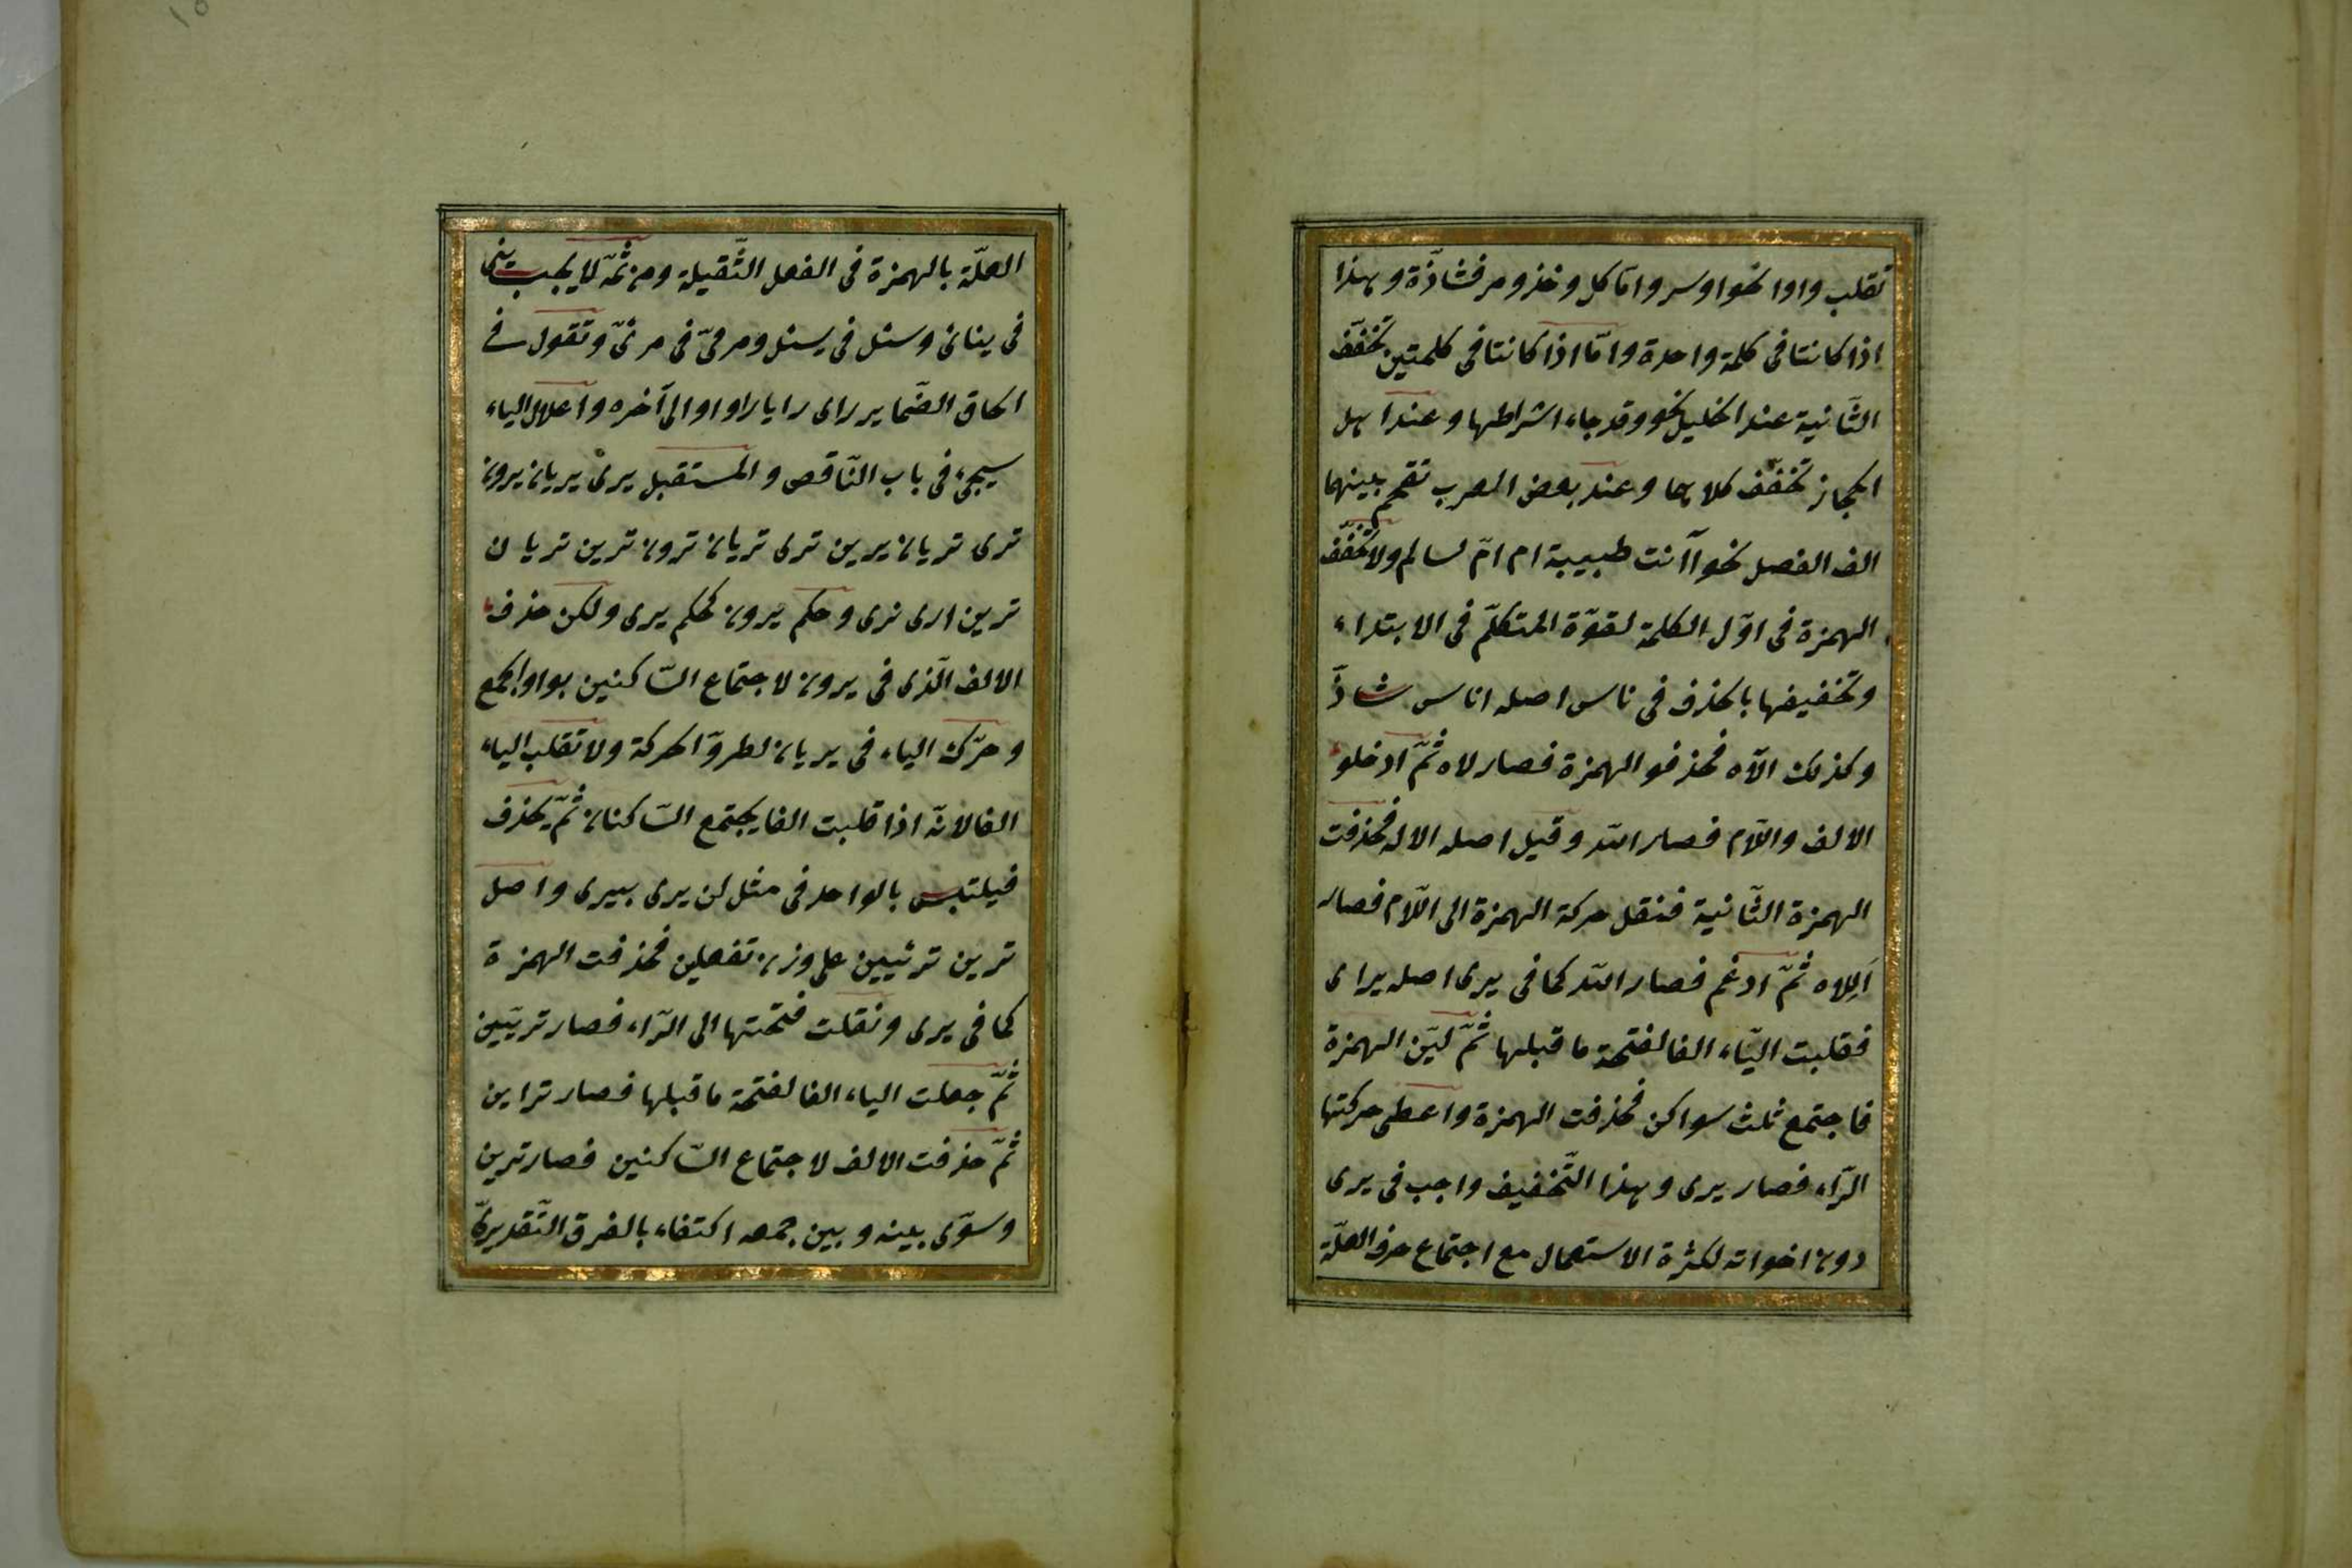 تقلب واوا نحو اوسر واما كل وخذ ومر فشاذّة وهذا
اذا كانتا فى كلمة واحدة وامّا اذا كانتا فى كلمتين تخفّف
الثّانية عند الخليل نحو وقد جاء اشراطها وعند اهل
الحجاز تخفّف كلاهما وعند بعض العرب تقحم بينهما
الف الفصل نحو آأنت طبيبة ام امّ سالم ولا تخفّف
الهمزة فى اوّل الكلمة لقوّة المتكلّم فى الابتداء
وتخفيفها بالحذف فى ناس اصله اناس شاذّ
وكذلك الآه فحذفو الهمزة فصار لاه ثمّ ادخلو
الالف واللّام فصار الله وقيل اصله الاله فحذفت
الهمزة الثّانية فنقل حركة الهمزة الى اللّام فصار
اَلِلاه ثمّ ادغم فصار الله كما فى يرى اصله يراى
فقلبت اليّاء الفا لفتحة ما قبلها ثمّ ليّن الهمزة
فاجتمع ثلث سواكن فحذفت الهمزة واعطى حركتها
الرّاء فصار يرى وهذا التّخفيف واجب فى يرى
دون اخواته لكثرة الاستعمال مع اجتماع حرف العلّة
العلّة بالهمزة فى الفعل الثّقيلة ومن ثمّه لا يجب ينى
فى ينائ وسئل فى يسئل ومرىّ فى مرئىّ وتقول فے
الحاق الضّماير راى رايا راوا والى آخره واعلال الياء
سيجئ فى باب النّاقص والمستقبل يرى يريان يرون
ترى تريان يرين ترى تريان ترون ترين تريان
ترين ارى نرى وحكم يرون كحكم يرى ولكن حذف
الالف الّذى فى يرون لاجتماع السّاكنين بواو الجمع
وحرّك الياء فى يريان لطروّ الحركة ولا تقلب الياء
الفا لانّه اذا قلبت الفا يجتمع السّاكنان ثمّ يحذف
فيلتبس بالواحد فى مثل لن يرى بيرى واصل
ترين ترئيين على وزن تفعلين فحذفت الهمزة
كما فى يرى ونقلت فتحتها الى الرّاء فصار تريَيين
ثمّ جعلت الياء الفا لفتحة ما قبلها فصار تراين
ثمّ حذفت الالف لاجتماع السّاكنين فصار ترين
وسوّى بينه وبين جمعه اكتفاء بالفرق التّقديرىّ